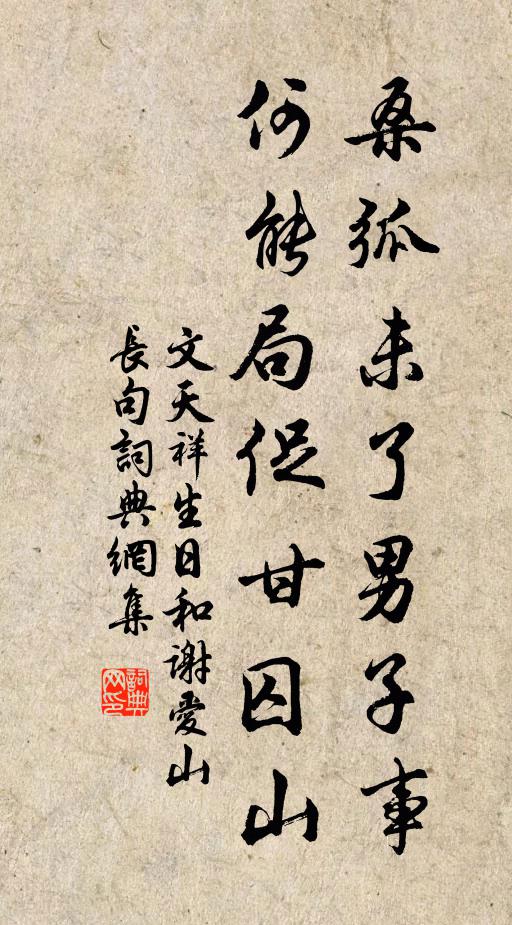 桑弧未了男子事
何能局促甘囚山
文天祥生日和謝愛山
長句詞典網集
詞典网印